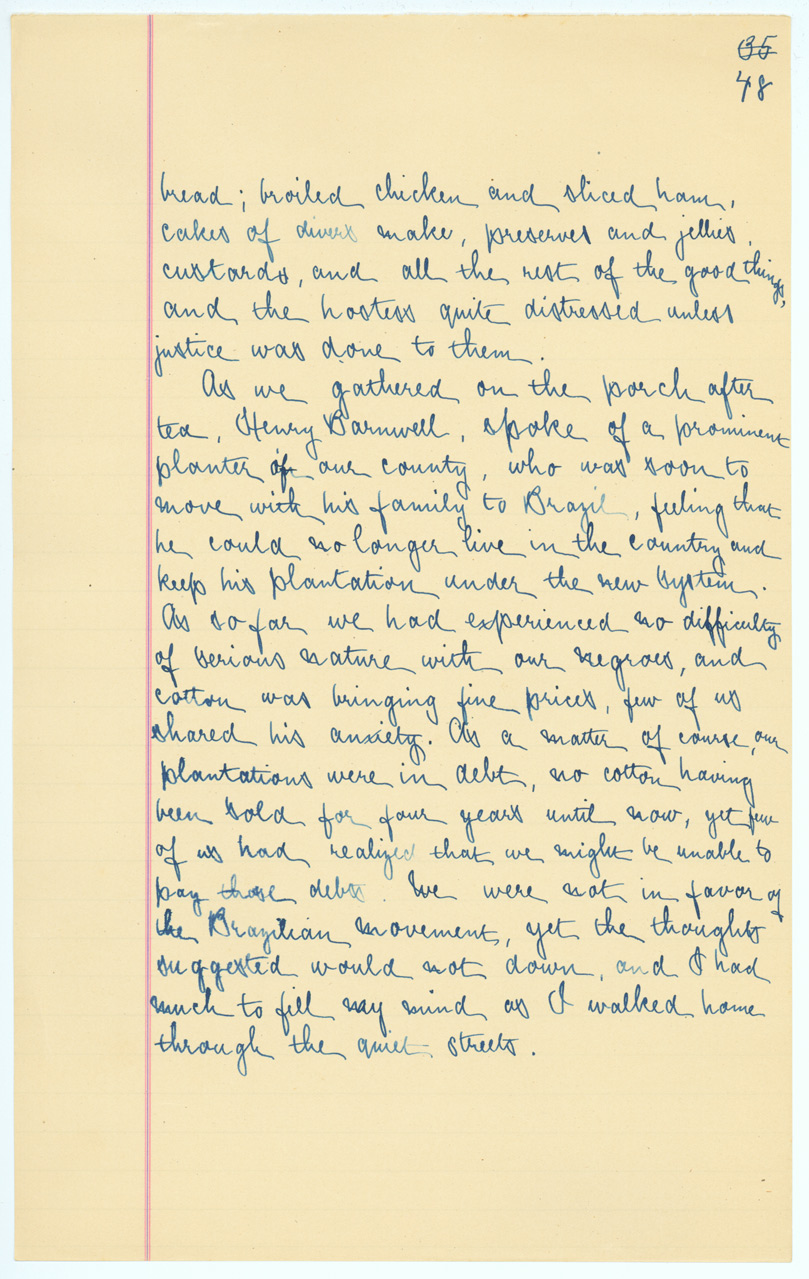 35
48
bread; broiled chicken and sliced ham,
cakes of divers make, preserves and jellies,
custards, and all the rest of the good things,
and the hostess quite distressed unless
justice was done to them.
As we gathered on the porch after
tea, Henry Barnwell, spoke of a prominent
planter of our county, who was soon to
move with his family to Brazil, feeling that
he could no longer live in the country and
keep his plantation under the new system.
As so far we had experienced no difficulty
of serious nature with our negroes, and
cotton was bringing fine prices, few of us
shared his anxiety. As a matter of course, our
plantations were in debt, no cotton having
been sold for four years until now, yet few
of us had realized that we might be unable to
pay those debts. We were not in favor of
the Brazilian movement, yet the thoughts
suggested would not down, and I had
much to fill my mind as I walked home
through the quiet streets.